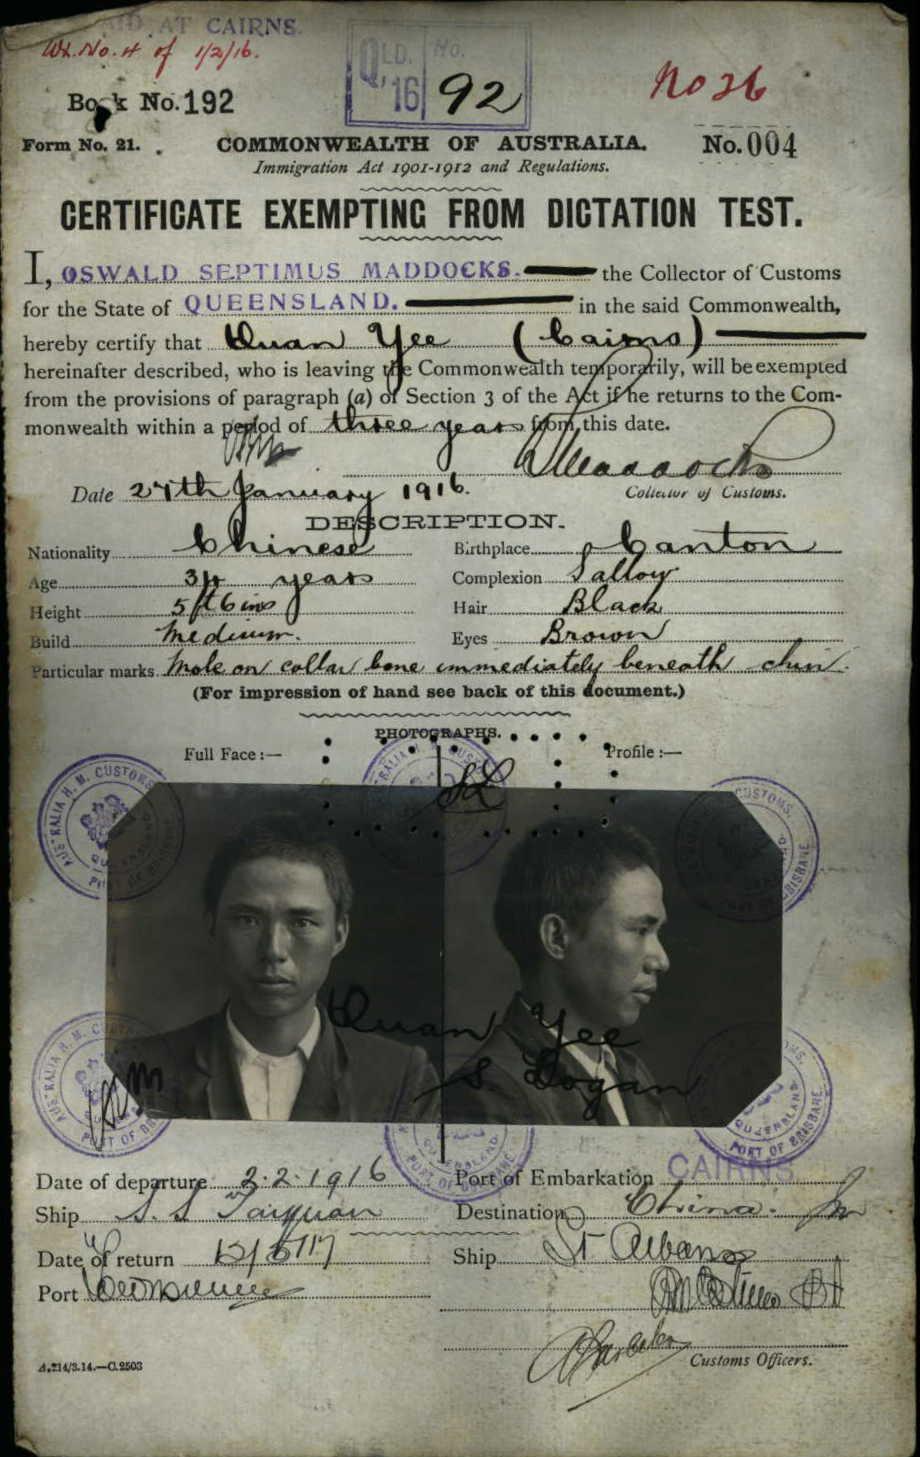 PAID AT CAIRNS.
No. 4 of 1/2/16.
QLD. No.
'16 92
No 26
Book No. 192
Form No. 21.
COMMONWEALTH OF AUSTRALIA.
No. 004
Immigration Act 1901-1912 and Regulations.
CERTIFICATE EXEMPTING FROM DICTATION TEST.
I, OSWALD SEPTIMUS MADDOCKS. the Collector of Customs
for the State of QUEENSLAND. in the said Commonwealth,
hereby certify that Quan Yee (Cairns)
hereinafter described, who is leaving the Commonwealth temporarily, will be exempted
from the provisions of paragraph (a) of Section 3 of the Act if he returns to the Com-
monwealth within a period of three years from this date.
Maddocks
Date 27th January 1916. Collector of Customs.
DESCRIPTION.
Nationality Chinese Birthplace Canton
Age 34 years Complexion Sallow
Height 5 ft 6 ins Hair Black
Build Medium. Eyes Brown
Particular marks Mole on collar bone immediately beneath chin.
(For impression of hand see back of this document.)
PHOTOGRAPHS.
Full Face :— Profile :—
AUSTRALIA H. M. CUSTOMS
QUEENSLAND
PORT OF BRISBANE
Quan Yee
S Logan
Date of departure 2.2.1916 Port of Embarkation CAIRNS
Ship S.S Taiyuan Destination China.
Date of return Ship St Albans
Port
Customs Officers.
A.214/3.14.—C.2503